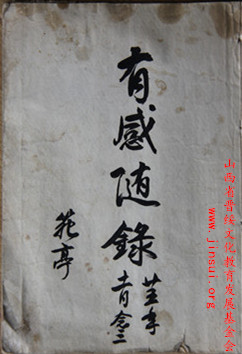 有感随錄
芸亭
山西省晋绥文化教育发展基金会
www.jinsui.org